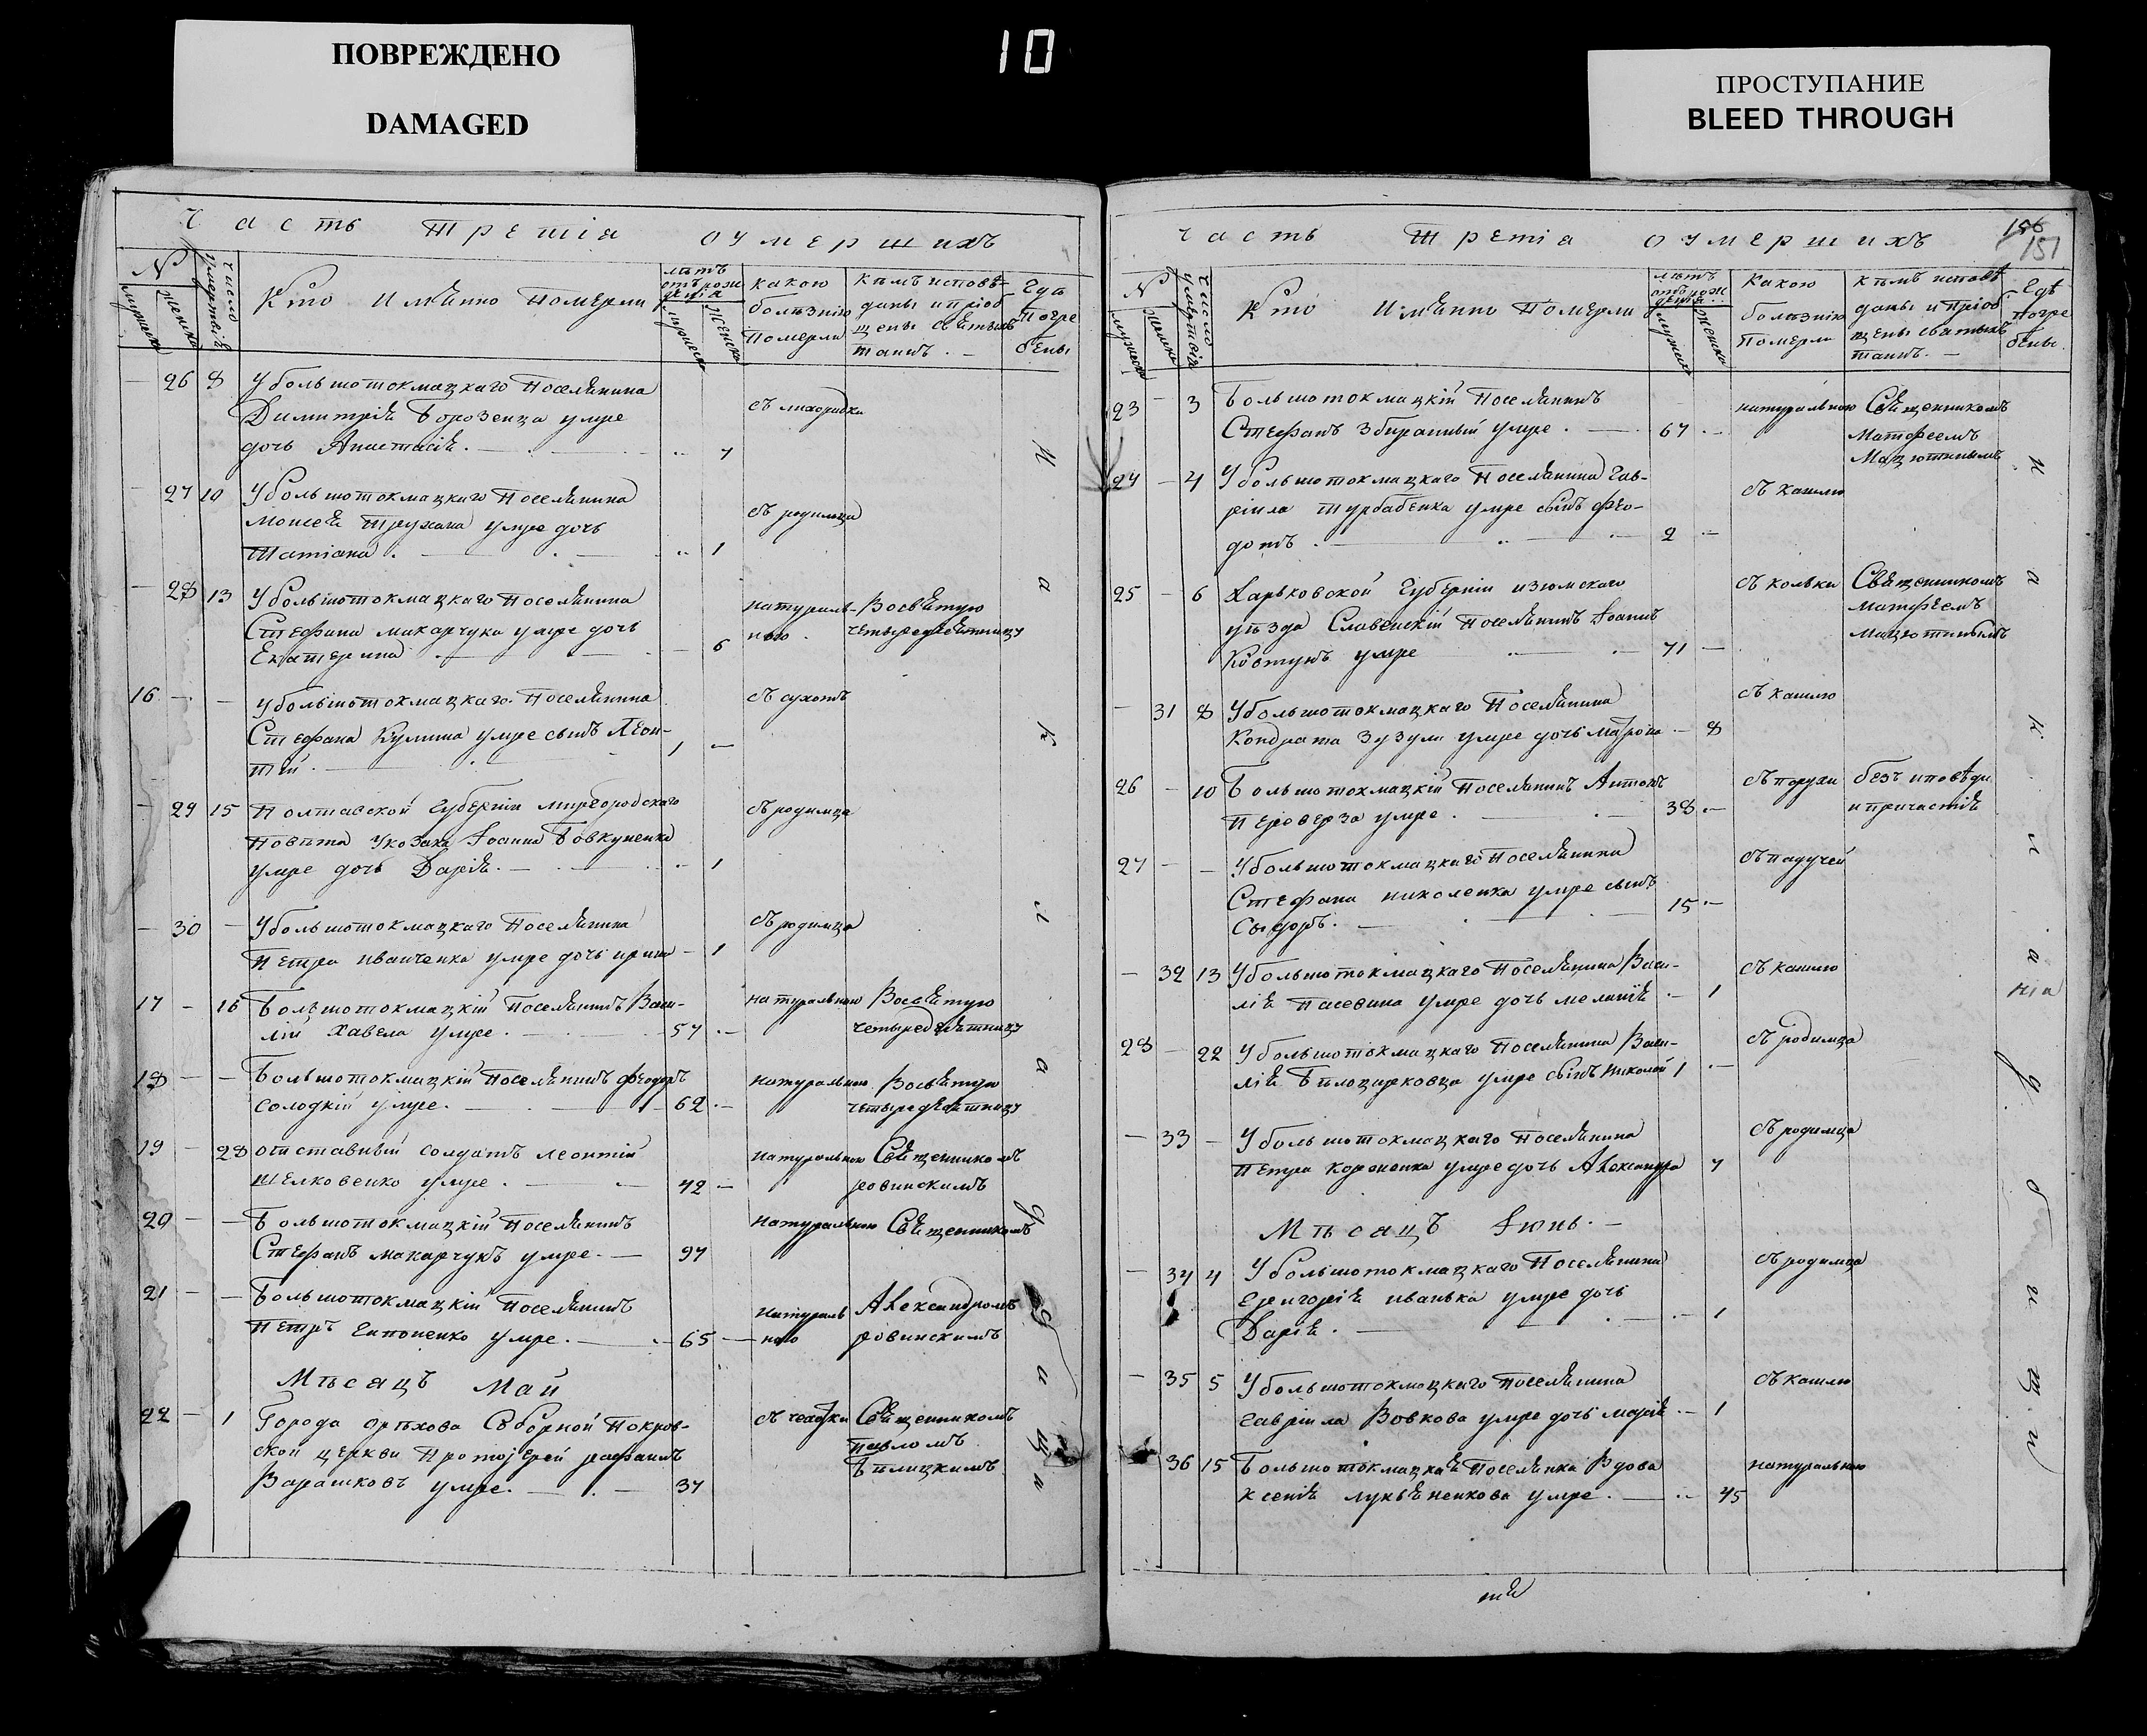 ПОВРЕЖДЕНО
DAMAGED
10
ПРОСТУПАНИЕ
BLEED THROUGH
Часть Третіа оумершихъ
№
мужеска
женска
число умертвія
Кто имѣнно Померли
лѣтъ отъ рождѣніа
мужеска
женска
какою болѣзнію Померли
кѣмъ исповѣданы и пріобщены святыхъ таинъ. –
Гдѣ Погребены
– 26 8 У большотокмацкаго Поселянина
Димитрія Борозенца умре
съ лихорадки
дочь Анастасія. – 7
– 27 10 У большотокмацкаго Поселянина
Моисея Трухана умре дочь
съ родимца
Татіана. – 1
– 28 13 У большотокмацкаго Поселянина
Стефана макарчука умре дочь
натуральною. Восвятую четыредесятницу
Екатерина – 6
16 – – У большотокмацкаго Поселянина
съ сухотъ
Стефана Кулиша умре сынъ Леон-
тій. – 1 –
– 29 15 Полтавской Губерніи миргородскаго
съ родимца
Повѣта у козака Іоанна Бовкуненка
умре дочь Дарія. – 1
– 30 – У большотокмацкаго Поселянина
съ родимца
Петра иванченка умре дочь ирина – 1
17 – 16 Большотокмацкій Поселянинъ Васи-
натуральною Восвятую
лій Хавела умре. – 57 –
четыредесятницу
18 – – Большотокмацкій Поселянинъ феодоръ
натуральною Восвятую
солодкій умре. – 62 –
четыредесятницу
19 – 28 отставный солдатъ леонтій
натуральною Священникомъ
шелковенко умре. – 42 –
ровинскимъ
20 – – Большотокмацкій Поселянинъ
натуральною Священникомъ
Стефанъ макарчукъ умре. – 97
21 – – Большотокмацкій Поселянинъ
натуральною Александромъ
Петръ Гапоненко умре. – 65 –
ровинскимъ
Мѣсяцъ Май
22 – 1 Города орѣхова Соборной Покров-
съ чехотки Священникомъ
ской церкви Протоіерей рафаилъ
Павломъ
Варашковъ умре. – 37
Билицкимъ
На кладбищи
Часть Третіа оумершихъ
156
151
№
мужеска
женска
число умертвія
Кто имѣнно Померли
лѣтъ отъ рождѣнія
мужеска
женска
какою болѣзнію Померли
кѣмъ исповѣданы и пріобщены святыхъ таинъ. –
Гдѣ Погребены.
23 – 3 Большотокмацкій Поселянинъ
натуральною Священникомъ
Стефанъ Збиранный умре. – 67 –
Матфеемъ
Мацютинымъ
24 – 4 У большотокмацкаго Поселянина Гав-
съ кашлю
ріила турбабенка умре сынъ фео-
дотъ. – 2 –
25 – 6 Харьковской Губерніи изюмскаго
съ кольки Священникомъ
уѣзда Славенскій Поселянинъ Іоаннъ
матфеемъ
Ковтунъ умре – 71 –
мацютинымъ
– 31 8 У большотокмацкаго Поселянина
съ кашлю
Кондрата Зузули умре дочь матрона – 8
26 – 10 Большотокмацкій Поселянинъ Антонъ
съ порухи безъ исповѣди
Пероверза умре. – 38 –
и причастія
27 – – У большотокмацкаго Поселянина
съ падучей
Стефана николенка умре сынъ
15 –
Сыдоръ. –
– 32 13 У большотокмацкаго Поселянина Васи-
съ кашлю
лія Пасевина умре дочь меланія. – 1
28 – 22 У большотокмацкаго Поселянина Васи-
съ родимца
лія Билоцерковца умре сынъ николай 1 –
– 33 – У большотокмацкаго Поселянина
съ родимца
Петра короненка умре дочь Александра 7
Мѣсяцъ Іюнь. –
– 34 4 У большотокмацкаго Поселянина
съ родимца
Григорія иванька умре дочь
Дарія. – 1
– 35 5 У большотокмацкаго Поселянина
съ кашлю
гавріила Вовкова умре дочь марія – 1
36 15 Большотокмацкая Поселянка Вдова
натуральною
Ксенія лукьяненкова умре. – 75
На кладбищи
ніа